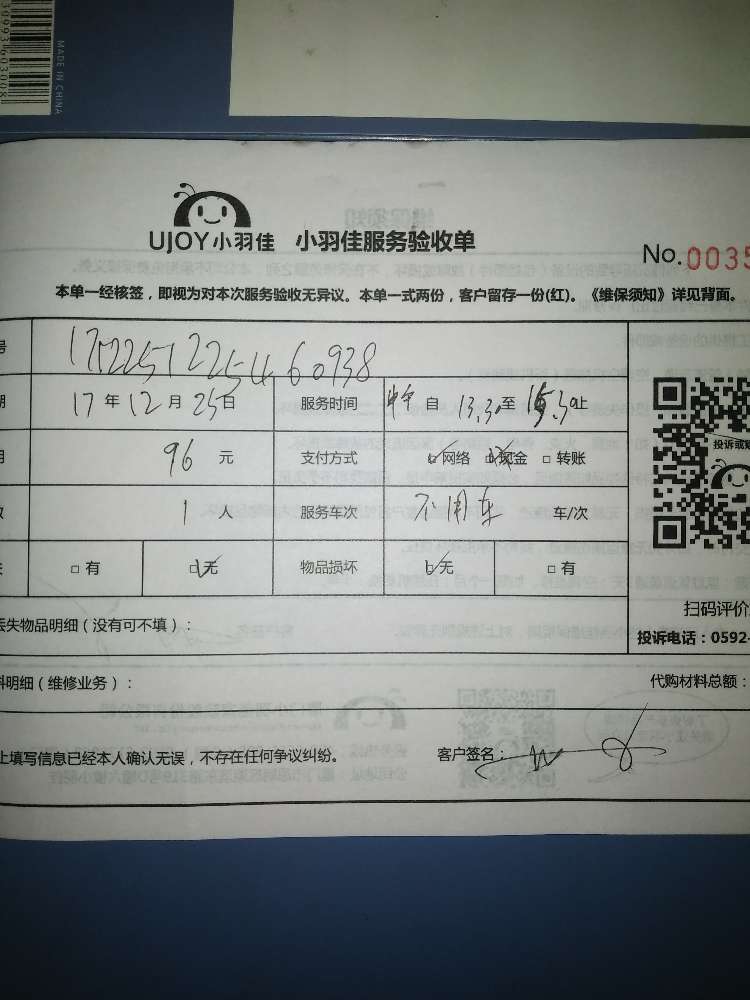 MADE IN CHINA
UJOY小羽佳 小羽佳服务验收单
No.0035
本单一经核签，即视为对本次服务验收无异议。本单一式两份，客户留存一份(红)。《维保须知》详见背面。
号 1752251225460938
期 17年12月25日 服务时间 自 13.30至 15.30止
用 96元 支付方式 网络 现金 转账
数 1人 服务车次 不用车 车/次
失 有 无 物品损坏 无 有
投诉或
扫码评价
丢失物品明细（没有可不填）：
投诉电话：0592-
料明细（维修业务）： 代购材料总额：
上填写信息已经本人确认无误，不存在任何争议纠纷。 客户签名：